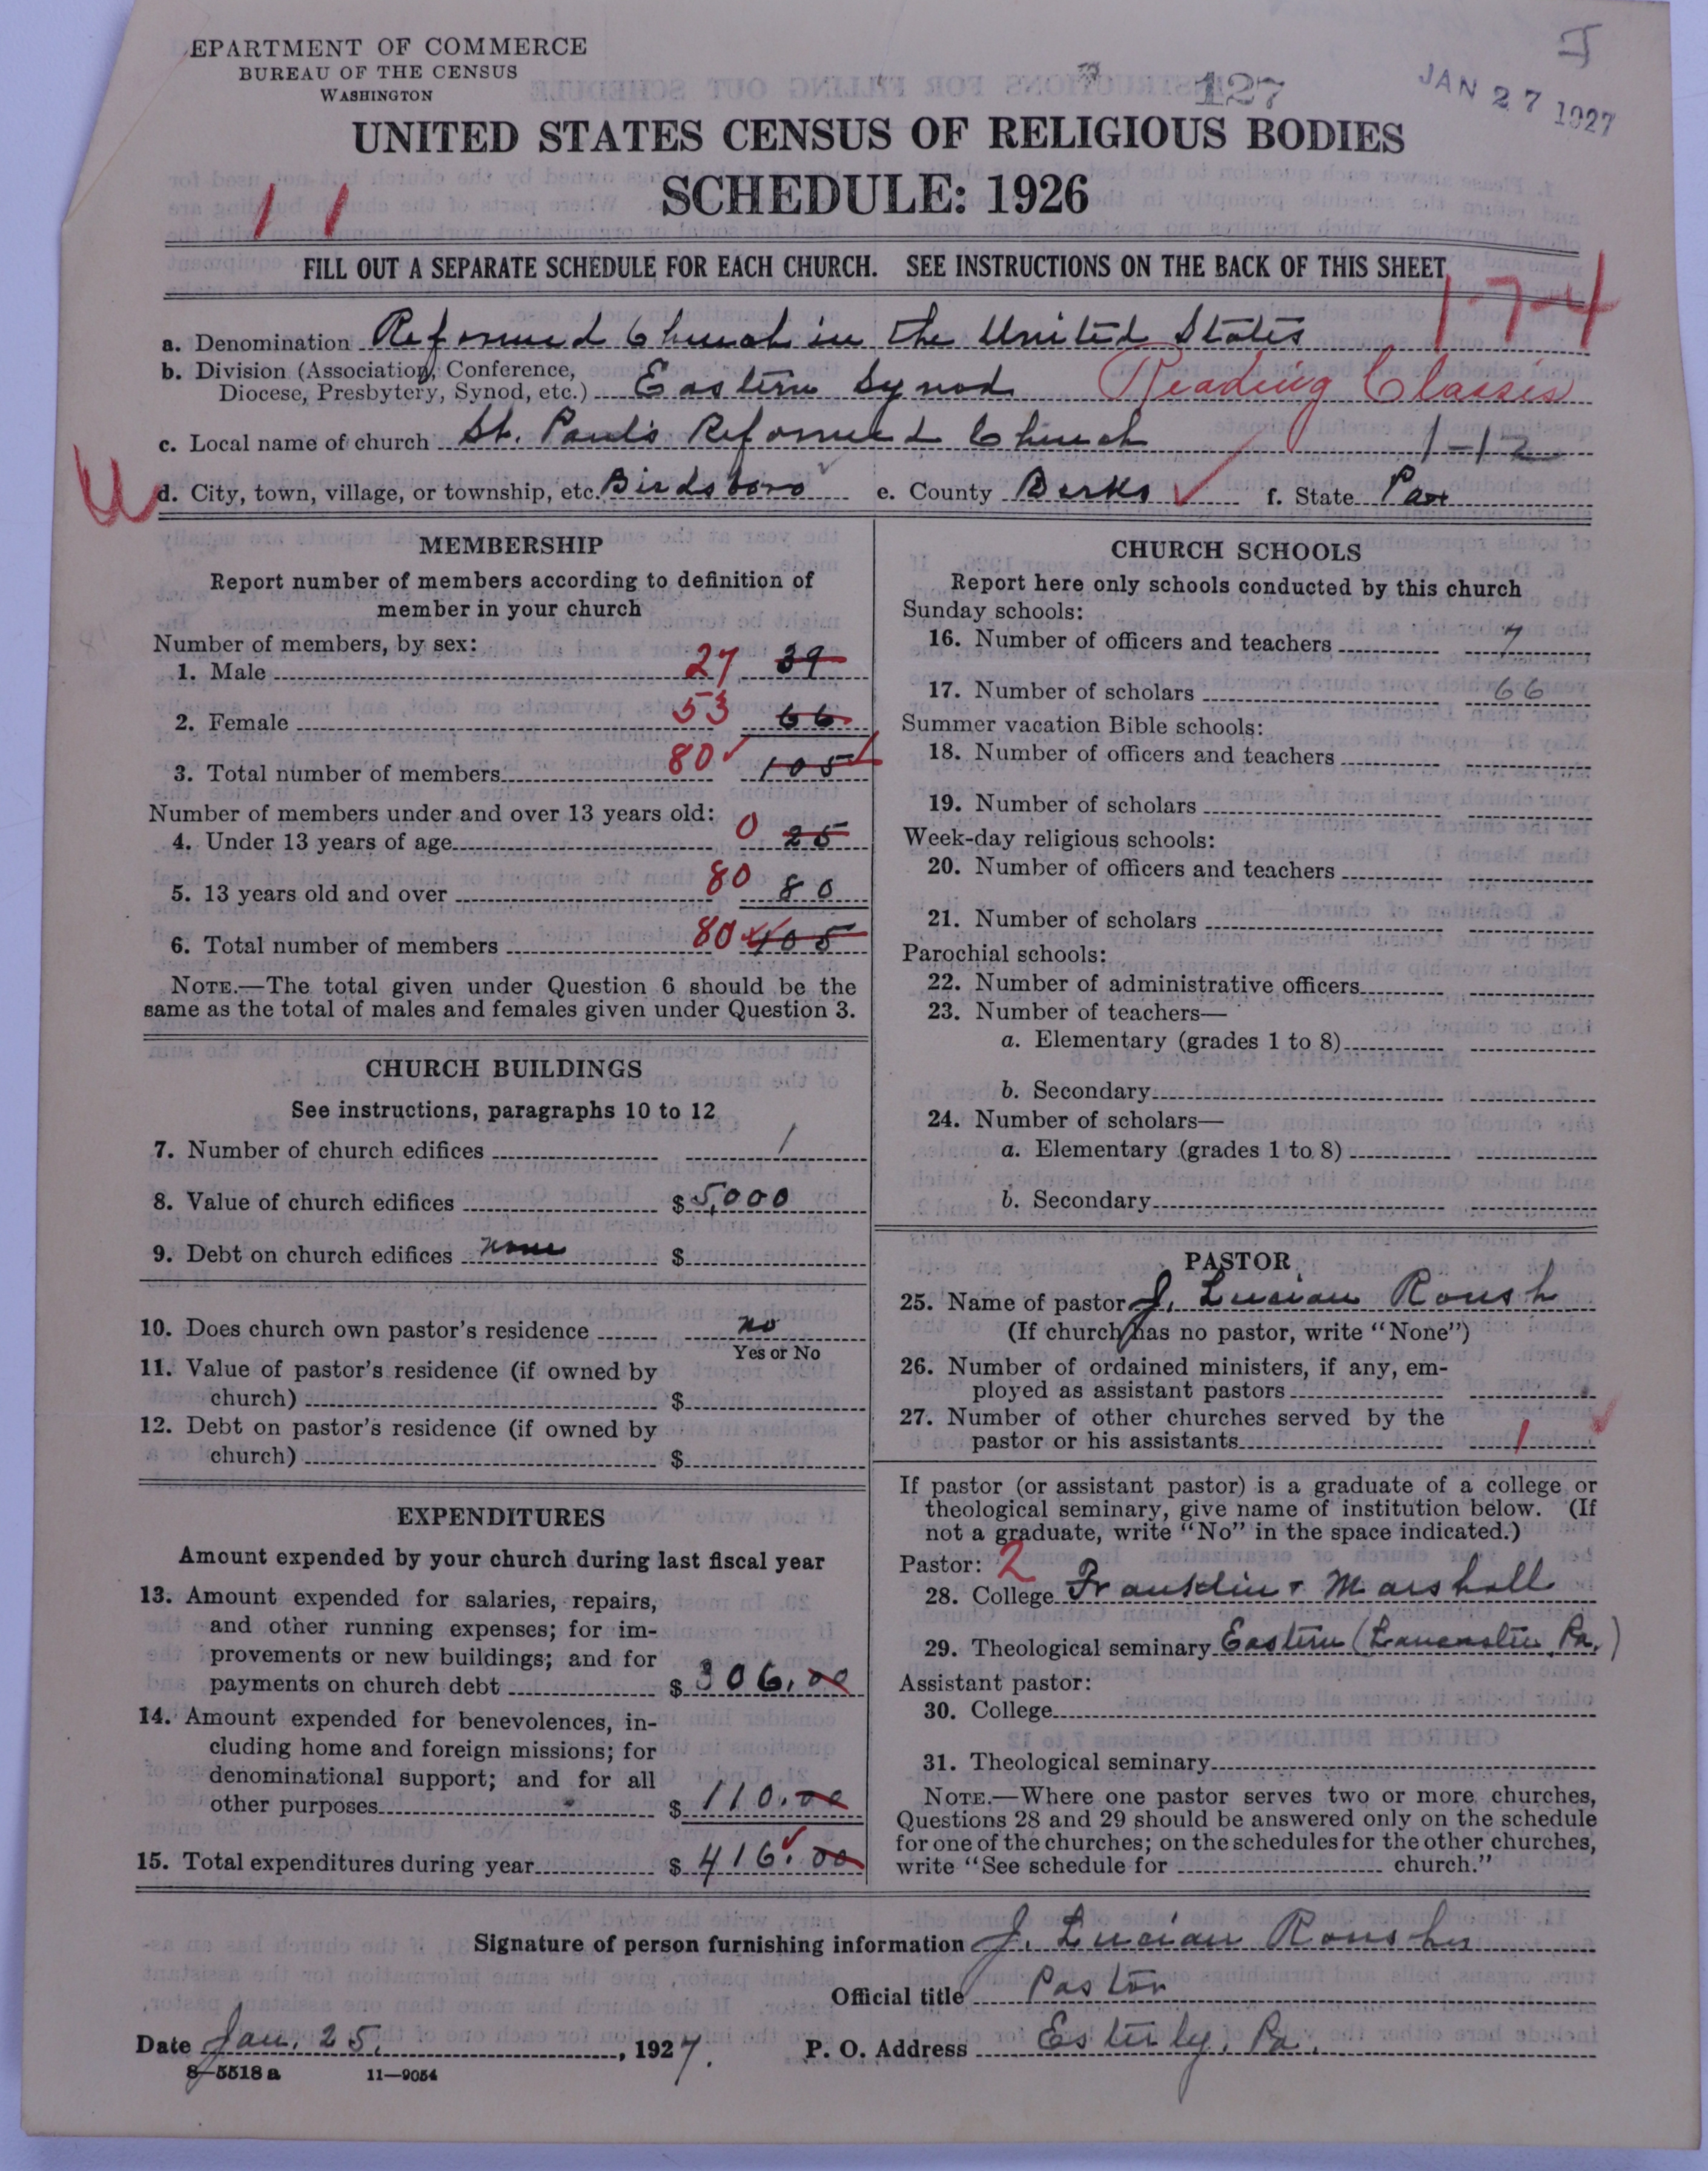 EPARTMENT OF COMMERCE
BUREAU OF THE CENSUS
WASHINGTON
127
JAN 27 1927
UNITED STATES CENSUS OF RELIGIOUS BODIES
SCHEDULE: 1926
1 1
FILL OUT A SEPARATE SCHEDULE FOR EACH CHURCH. SEE INSTRUCTIONS ON THE BACK OF THIS SHEET
1-7-4
a. Denomination Reformed Church in the United States
b. Division (Association, Conference, Diocese, Presbytery, Synod, etc.) Eastern Synod Reading Classis
c. Local name of church St. Paul's Reformed Church 1-12
d. City, town, village, or township, etc. Birdsboro e. County Berks f. State Pa
MEMBERSHIP
Report number of members according to definition of
member in your church
Number of members, by sex:
1. Male 27 39
2. Female 53 66
3. Total number of members 80 105
Number of members under and over 13 years old:
4. Under 13 years of age 0 25
5. 13 years old and over 80 80
6. Total number of members 80 105
NOTE.—The total given under Question 6 should be the
same as the total of males and females given under Question 3.
CHURCH BUILDINGS
See instructions, paragraphs 10 to 12
7. Number of church edifices 1
8. Value of church edifices $ 5,000
9. Debt on church edifices none $
10. Does church own pastor's residence no
Yes or No
11. Value of pastor's residence (if owned by
church) $
12. Debt on pastor's residence (if owned by
church) $
EXPENDITURES
Amount expended by your church during last fiscal year
13. Amount expended for salaries, repairs,
and other running expenses; for im-
provements or new buildings; and for
payments on church debt $ 306.00
14. Amount expended for benevolences, in-
cluding home and foreign missions; for
denominational support; and for all
other purposes $ 110.00
15. Total expenditures during year $ 416.00
CHURCH SCHOOLS
Report here only schools conducted by this church
Sunday schools:
16. Number of officers and teachers 7
17. Number of scholars 66
Summer vacation Bible schools:
18. Number of officers and teachers
19. Number of scholars
Week-day religious schools:
20. Number of officers and teachers
21. Number of scholars
Parochial schools:
22. Number of administrative officers
23. Number of teachers—
a. Elementary (grades 1 to 8)
b. Secondary
24. Number of scholars—
a. Elementary (grades 1 to 8)
b. Secondary
PASTOR
25. Name of pastor J. Lucian Roush
(If church has no pastor, write "None")
26. Number of ordained ministers, if any, em-
ployed as assistant pastors
27. Number of other churches served by the
pastor or his assistants 1
If pastor (or assistant pastor) is a graduate of a college or
theological seminary, give name of institution below. (If
not a graduate, write "No" in the space indicated.)
Pastor: 2
28. College Franklin & Marshall
29. Theological seminary Eastern (Lancaster Pa.)
Assistant pastor:
30. College
31. Theological seminary
NOTE.—Where one pastor serves two or more churches,
Questions 28 and 29 should be answered only on the schedule
for one of the churches; on the schedules for the other churches,
write "See schedule for church."
Signature of person furnishing information J. Lucian Roush
Official title Pastor
Date Jan. 25, 1927. P. O. Address Esterly, Pa.
8-5518 a 11—9054